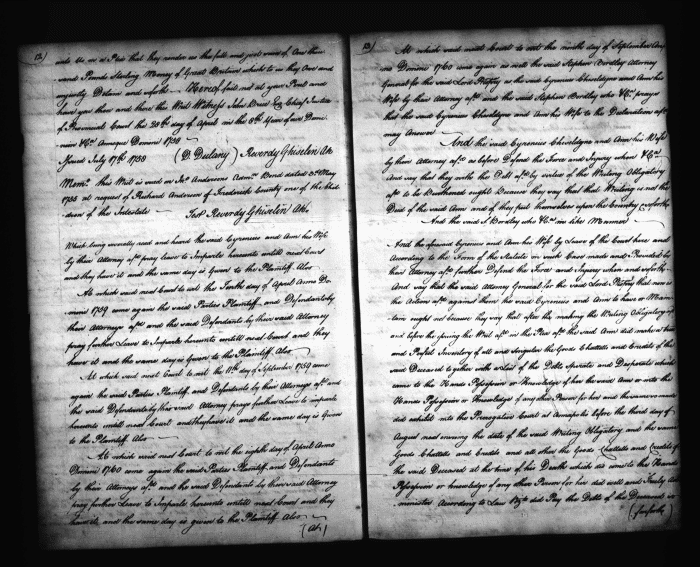 12)
unto Us in a Plea that they render us the full and just sum of One thou
sand Pounds Sterling Money of Great Britain which to us they Owe and
unjustly Detain and so forth Hereof fail not at your Peril and
have you then and there this Writ Witness John Esq. Chief Justice
of Provincial Court the 28th day of April in the 8th Year of our Domi
nion &Ca. Annoque Domini 1758
Issued July 17th 1758 (D. Dulany) Reverdy Ghiselin Clk
Mem.o This Writ is used on Jas. Andersons Admn. Bond dated 3d May
1755 at request of Richard Anderson of Frederick County one of the Chil
dren of the Intestate Test Reverdy Ghiselin Clk.
Which being read and heard the said Cyrenius and Ann his Wife
by their Attorney afd. pray leave to Imparle hereunto untill next Court
and they have it and the same day is Given to the Plaintiff Also
At which said next Court to wit the Tenth day of April Anno Do
mini 1759 came again the said Parties Plaintiff, and Defendants by
their Attorneys afd. and the said Defendants by their said Attorney
pray further Leave to Imparle hereunto untill next Court and they
have it and the same day is Given to the Plaintiff Also
At which said next Court to wit the 11th day of September 1759 came
again the said Parties Plaintiff, and Defendants by their Attorneys afd. and
the said Defendants by their said Attorney prays further Leave to imparle
hereunto untill next Court and they have it and the same day is Given
to the Plaintiff Also
At which said next Court to wit the eighth day of April Anno
Domini 1760 came again the said Parties Plaintiff, and Defendants
by their Attorneys afd. and the said Defendants by their said Attorney
pray further Leave to Imparle hereunto untill next Court and they
have it, and the same day is given to the Plaintiff Also
(At)
13)
At which said next Court to wit the ninth day of September An
no Domini 1760 came again as well the said Stephen Bordley Attorney
General for the said Lord Proprietary as the said Cyrenius and Ann his
Wife by their Attorney afd. and the said Stephen Bordley who &Ca. prays
that the said Cyrenius and Ann his Wife to the Declaration afd.
may Answer
And the said Cyrenius and Ann his Wife
by their Attorney afd. as before Defend the Force and Injury when &Ca.
And say that they with the Debt afd. by virtue of the Writing Obligatory
afd. to be Burthened ought Because they say that that Writing is not the
Deed of the said Ann and of this they put themselves upon the Country &c
And the said S Bordley who &Ca. in like Manner
And the aforesaid Cyrenius and Ann his Wife by Leave of the Court here and
According to the Form of the Statute in such Case made and Provided by
their Attorney afd. further Defend the Force and Injury when and so forth
And say that the said Attorney General for the said Lord Proprietary that now is
the Action afd. against them the said Cyrenius and Ann to have or Main
tain ought not because they say that after the making the Writing Obligatory afd.
and before the Writ afd. in the Plea afd. the said Ann did make a true
and Perfect Inventory of all and Singular the Goods Chattells and Credits of the
said Deceased together with a List of the Debts Sperate and Desperate which
came to the Hands Possession or Knowledge of her the said Ann or unto the
Hands Possession or Knowledge of any other Person for her and the same so made
did exhibit into the Prerogative Court at Annapolis before the third day of
August next ensuing the date of the said Writing Obligatory and the same
Goods Chattells and Credits and all other the Goods Chattells and Credits of
the said Deceased at the time of his Death which did come to the Hands
Possession or knowledge of any other Person for her did well and Truly Ad
minister According to Law did Pay the Debts of the Deceased